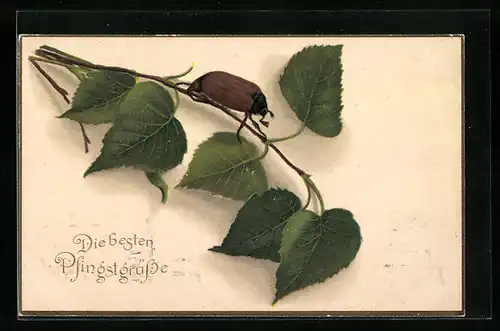 Die besten
Pfingstgrüße